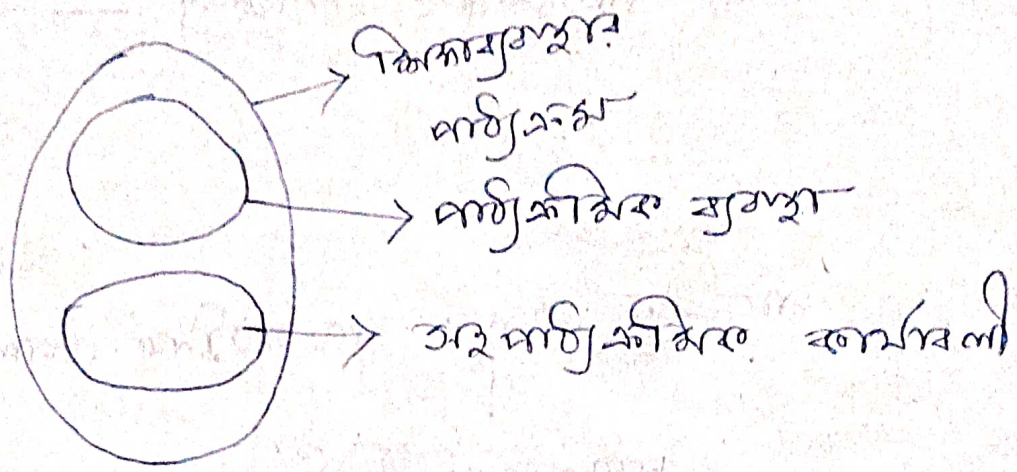 শিক্ষাব্যবস্থার
পাঠ্যক্রম
পাঠ্যক্রমিক ব্যবস্থা
সহপাঠ্যক্রমিক কার্যাবলী